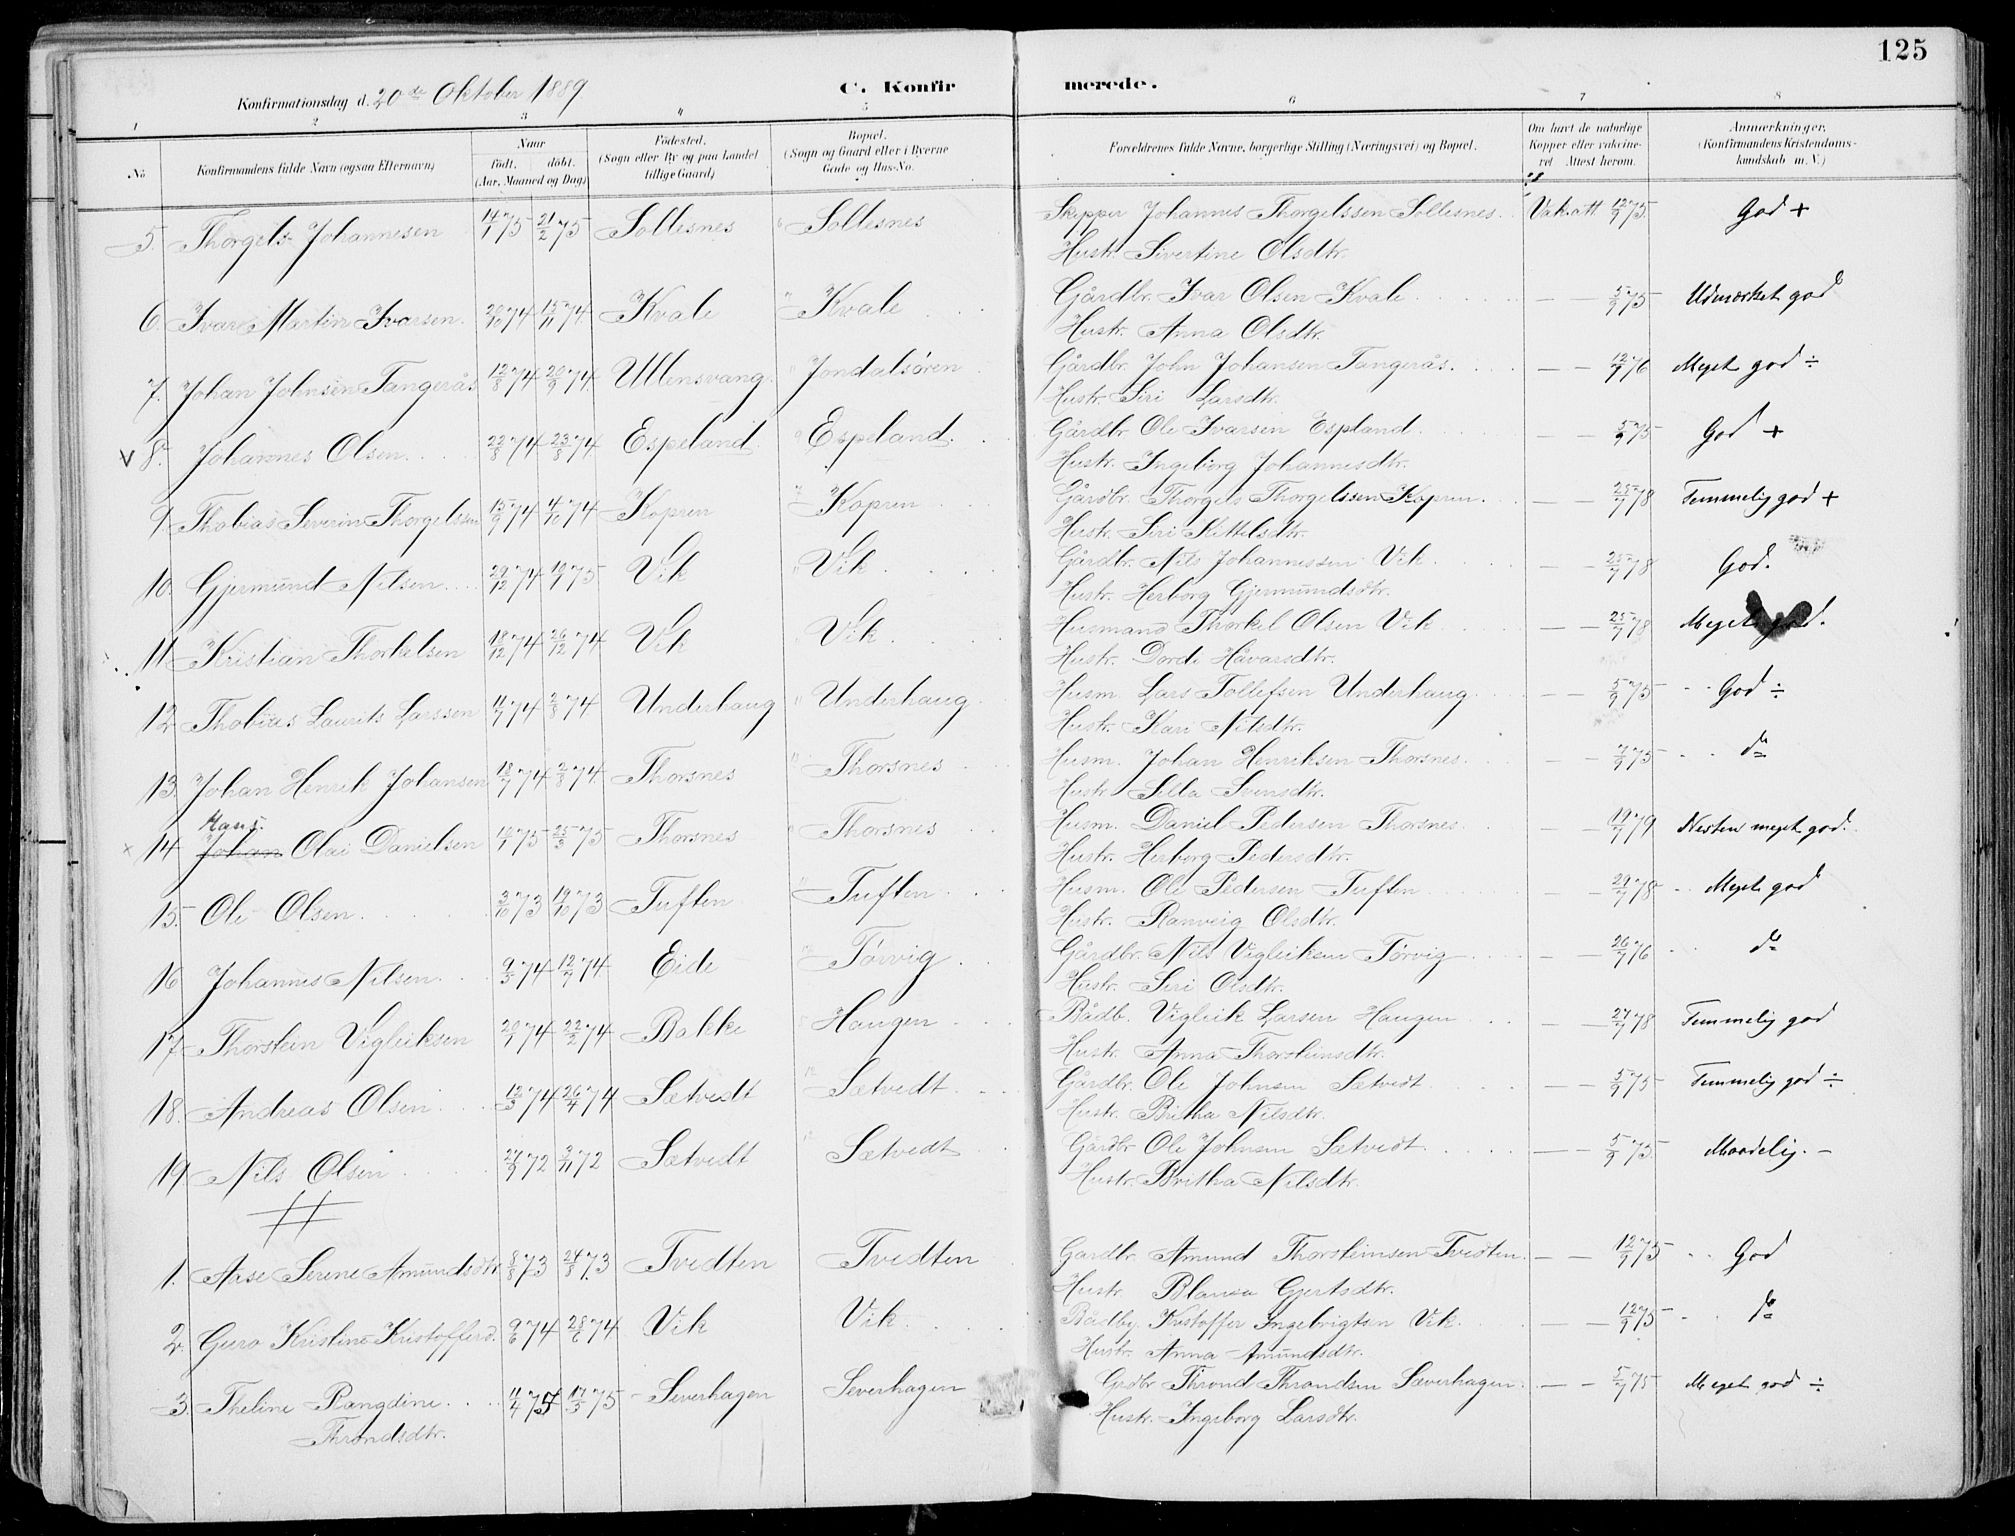 125
Konfirmationsdag d. 20de Oktober 1889 C. Konfirmerede.
1 2 3 4 5 6 7 8
No Konfirmandens fulde Navn (ogsaa Efternavn) Naar födt. döbt. (Aar, Maaned og Dag) Födested. (Sogn eller By og paa Landet tillige Gaard) Bopæl. (Sogn og Gaard eller i Byerne Gade og Hus-No. Forældrenes fulde Navne, borgerlige Stilling (Næringsvei) og Bopæl. Om havt de naturlige Kopper eller vaksineret Attest herom. Anmærkninger, (Konfirmandens Kristendomskundskab m. V.)
5. Thorgels Johannesen 14/1 75 21/2 75 Sollesnes Sollesnes Skipper Johannes Thorgelssen Sollesnes. Vak.att 12/9 75. God +
Hustr. Sivertine Olsdtr.
6. Ivar Martin Ivarsen. 20/10 74 15/11 74. Kvale Kvale Gårdbr. Ivar Olsen Kvale — — 5/9 75 Udmærket god
Hustr. Anna Olsdtr.
7. Johan Johnsen Tangerås 12/8 74 20/9 74. Ullensvang. Jondalsören Gårdbr. John Johansen Tangerås. — — 12/7 76 Meget god ÷
Hustr. Siri Larsdtr.
V 8. Johannes Olsen. 22/8 74 23/8 74 Espeland. Espeland. Gårdbr. Ole Ivarsen Espland. — — 5/9 75 God +
Hustr. Ingeborg Johannesdtr.
9. Thobias Severin Thorgelssen 15/9 74 4/10 74 Kopren Kopren Gårdbr. Thorgels Thorgelssen Kopren. — — 25/7 78 Temmelig god +
Hustr. Siri Kittelsdtr.
10. Gjermund Nilsen. 29/12 74 10/1 75 Vik Vik Gårdbr. Nils Johannessen Vik. — — 25/7 78 God.
Hustr. Herborg Gjermundsdtr.
11. Kristian Thorkelsen 18/12 74 26/12 74 Vik Vik. Husmand Thorkel Olsen Vik — — 25/7 78 Meget god.
Hustr. Dorde Håvarsdtr.
12 Thobias Laurits Larssen 11/7 74 2/8 74 Underhaug Underhaug. Husm. Lars Tollefsen Underhaug — — 5/9 75 God ÷
Hustr. Kari Nilsdtr.
13. Johan Henrik Johansen 18/7 74 2/8 74. Thorsnes Thorsnes Husm. Johan Henriksen Thorsnes. — — 7/9 75 do
Hustr. Silla Svensdtr.
Hans.
x 14 Johan Olai Danielsen 14/1 75 25/3 75 Thorsnes Thorsnes Husm. Daniel Pedersen Thorsnes — — 19/7 79 Nesten meget god.
Hustr. Herborg Pedersdtr.
15. Ole Olsen 3/10 73 19/10 73 Tuften Tuften Husm. Ole Pedersen Tuften — — 29/7 78 Meget god
Hustr. Ranveig Olsdtr.
16 Johannes Nilsen. 9/5 74 12/7 74. Eide Törvig Gårdbr. Nils Vigleiksen Törvig — — 26/7 76 do
Hustr. Siri Olsdtr.
17. Thorstein Vigleiksen 20/1 74 22/2 74 Bakke Haugen Rådb. Vigleik Larsen Haugen — — 27/7 78 Temmelig god
Hustr. Anna Thorsteinsdtr.
18. Andreas Olsen 12/3 74 26/4 74 Sætvedt Sætvedt Gårdbr. Ole Johnsen Sætvedt — — 5/9 75 Temmelig god ÷
Hustr. Britha Nilsdtr.
19. Nils Olsen 27/9 72 3/11 72 Sætvedt Sætvedt Gårdbr Ole Johnsen Sætvedt. — — 5/9 75. Maadelig. –
Hustr. Britha Nilsdtr.
1. Aase Serene Amundsdtr. 8/8 73 24/8 73 Tvedten Tvedten Gardbr. Amund Thorsteinsen Tvedten. — — 12/9 75 God
Hustr. Blansa Gjertsdtr.
2. Guro Kristine Kristofferd. 9/6 74 28/6 74 Vik Vik. Rådby. Kristoffer Ingebrigtsen Vik. — — 12/9 75 do
Hustr. Anna Amundsdtr.
3. Theline Rangdine 75 75 Severhagen Severhagen Grdbr Thrond Throndsen Sæverhagen. — — 5/7 75 Meget god ÷
Throndsdtr. Hustr. Ingeborg Larsdtr.